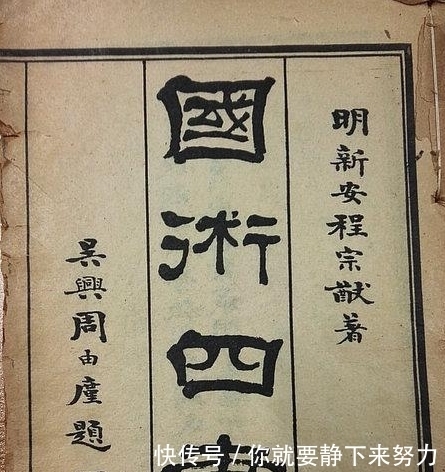 明新安程宗猷著
國術四
吳興周由廑題
快传号 / 你就要静下来努力